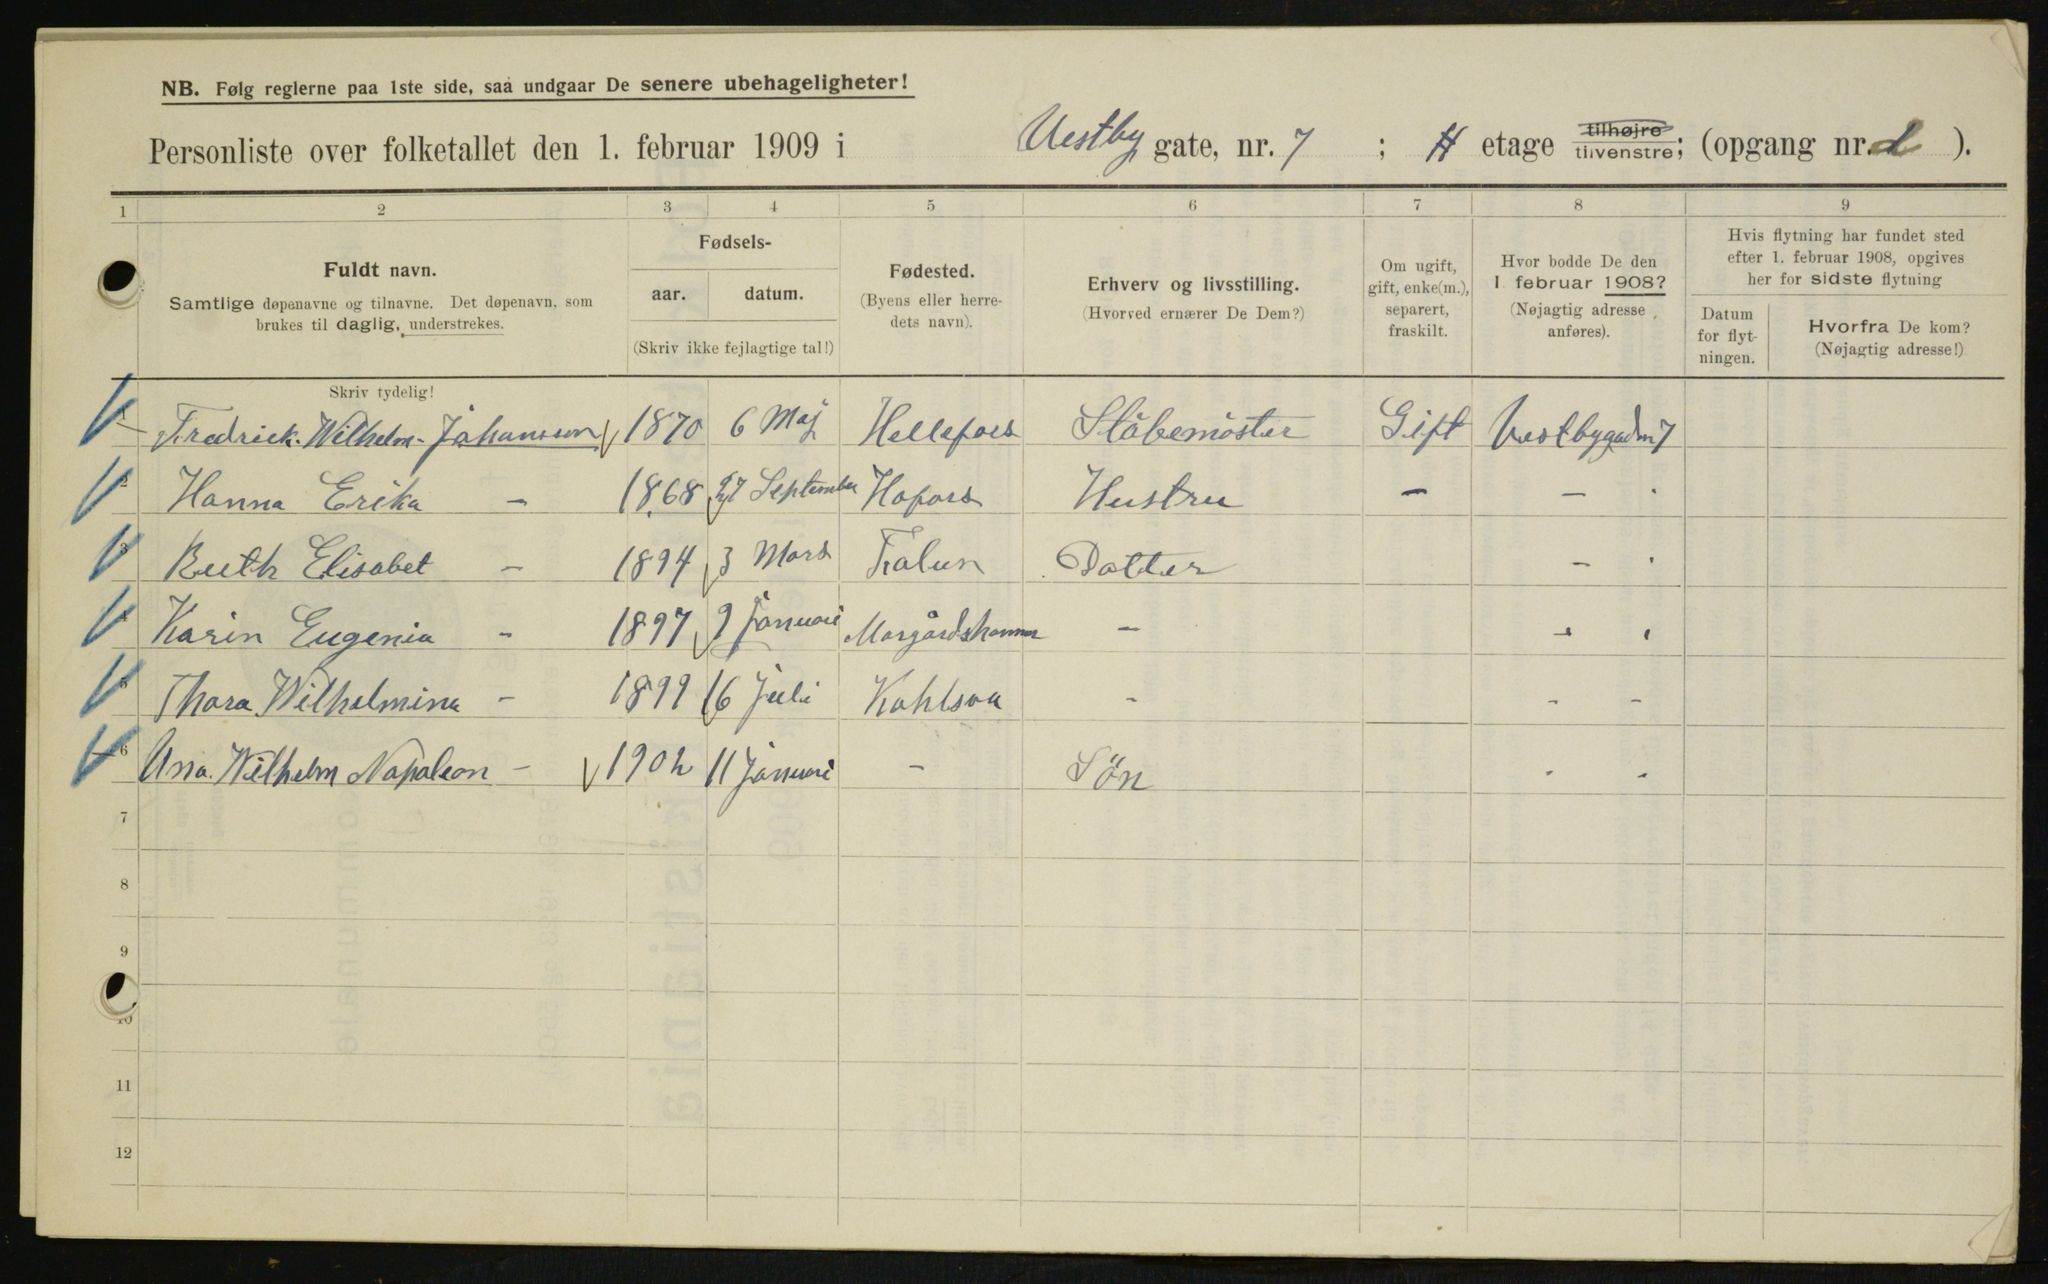 NB. Følg reglerne paa 1ste side, saa undgaar De senere ubehageligheter!
Personliste over folketallet den 1. februar 1909 i Vestby gate, nr. 7 ; etage tilhøjre tilvenstre; (opgang nr. ).
1 2 3 4 5 6 7 8 9
Fuldt navn.
Samtlige døpenavne og tilnavne. Det døpenavn, som
brukes til daglig, understrekes.
Fødsels-
aar. datum.
(Skriv ikke fejlagtige tal!)
Fødested.
(Byens eller herre-
dets navn).
Erhverv og livsstilling.
(Hvorved ernærer De Dem?)
Om ugift,
gift, enke(m.),
separert,
fraskilt.
Hvor bodde De den
1 februar 1908?
(Nøjagtig adresse
anføres).
Hvis flytning har fundet sted
efter 1. februar 1908, opgives
her for sidste flytning
Datum
for flyt-
ningen.
Hvorfra De kom?
(Nøjagtig adresse!)
Skriv tydelig!
1 Fredrick Wilhelm Johansson 1870 6 Maj Hellefors Gift Vestbygadn 7
2 Hanna Erika - 1868 27 September Hofors Hustru - - .
3 Ruth Elisabet - 1894 3 Mars Falun Datter - .
4 Karin Eugenia - 1897 9 Januari Morgårdshammar - " "
5 Thora Wilhelmina - 1899 16 Juli Kohlsva - - -
6 Una Wilhelm Napoleon - 1902 11 Januari - Sön " "
7
8
9
10
11
12